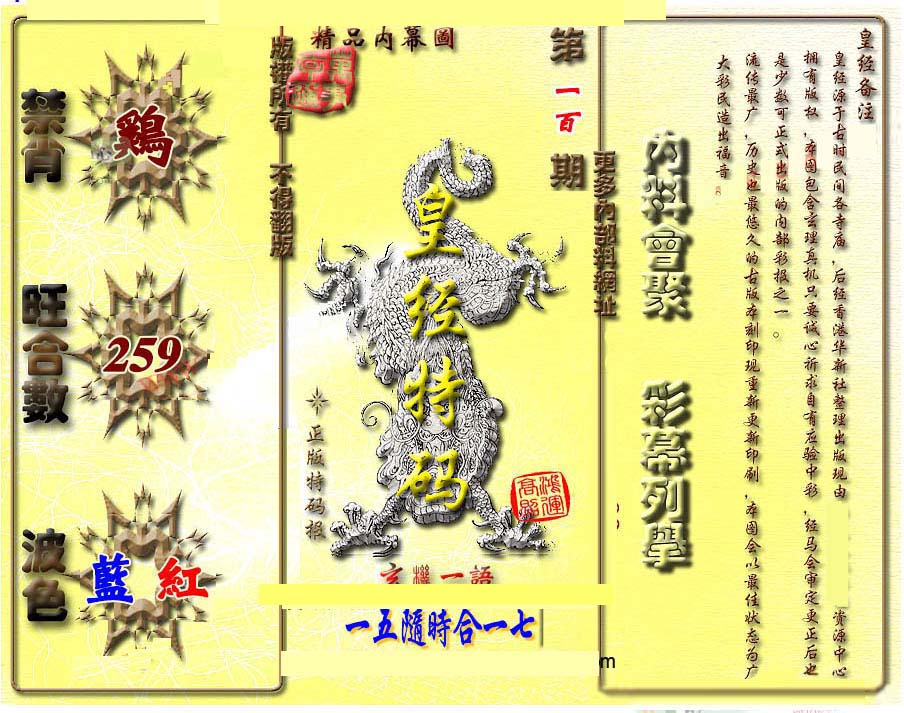 禁肖
鷄
旺合數
259
波色
藍 紅
精品内幕圖
版權所有 不得翻版
第一百期
更多內部料網址
皇经特码
正版特码报
鴻運高照
玄機一語
一五隨時合一七
om
内料會聚 彩幕列舉
皇经备注
皇经源于古时民间各寺庙,后经香港华新社整理出版现由 资源中心
拥有版权,本图包含玄理真机只要诚心祈求自有应验中彩,经马会审定更正后也
是少数可正式出版的内部彩报之一。
流传最广,历史也最悠久的古版本刻印现重新更新印刷,本图会以最佳状态为广
大彩民造出福音